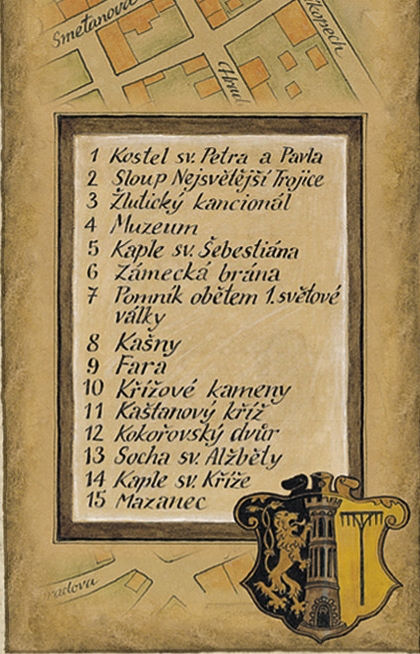 Smetanova
Kopech
Hrad
1 Kostel sv. Petra a Pavla
2 Sloup Nejsvětější Trojice
3 Žlutický kancionál
4 Muzeum
5 Kaple sv. Šebestiána
6 Zámecká brána
7 Pomník obětem 1. světové
války
8 Kašny
9 Fara
10 Křížové kameny
11 Kaštanový kříž
12 Kokořovský dvůr
13 Socha sv. Alžběty
14 Kaple sv. Kříže
15 Mazanec
radova